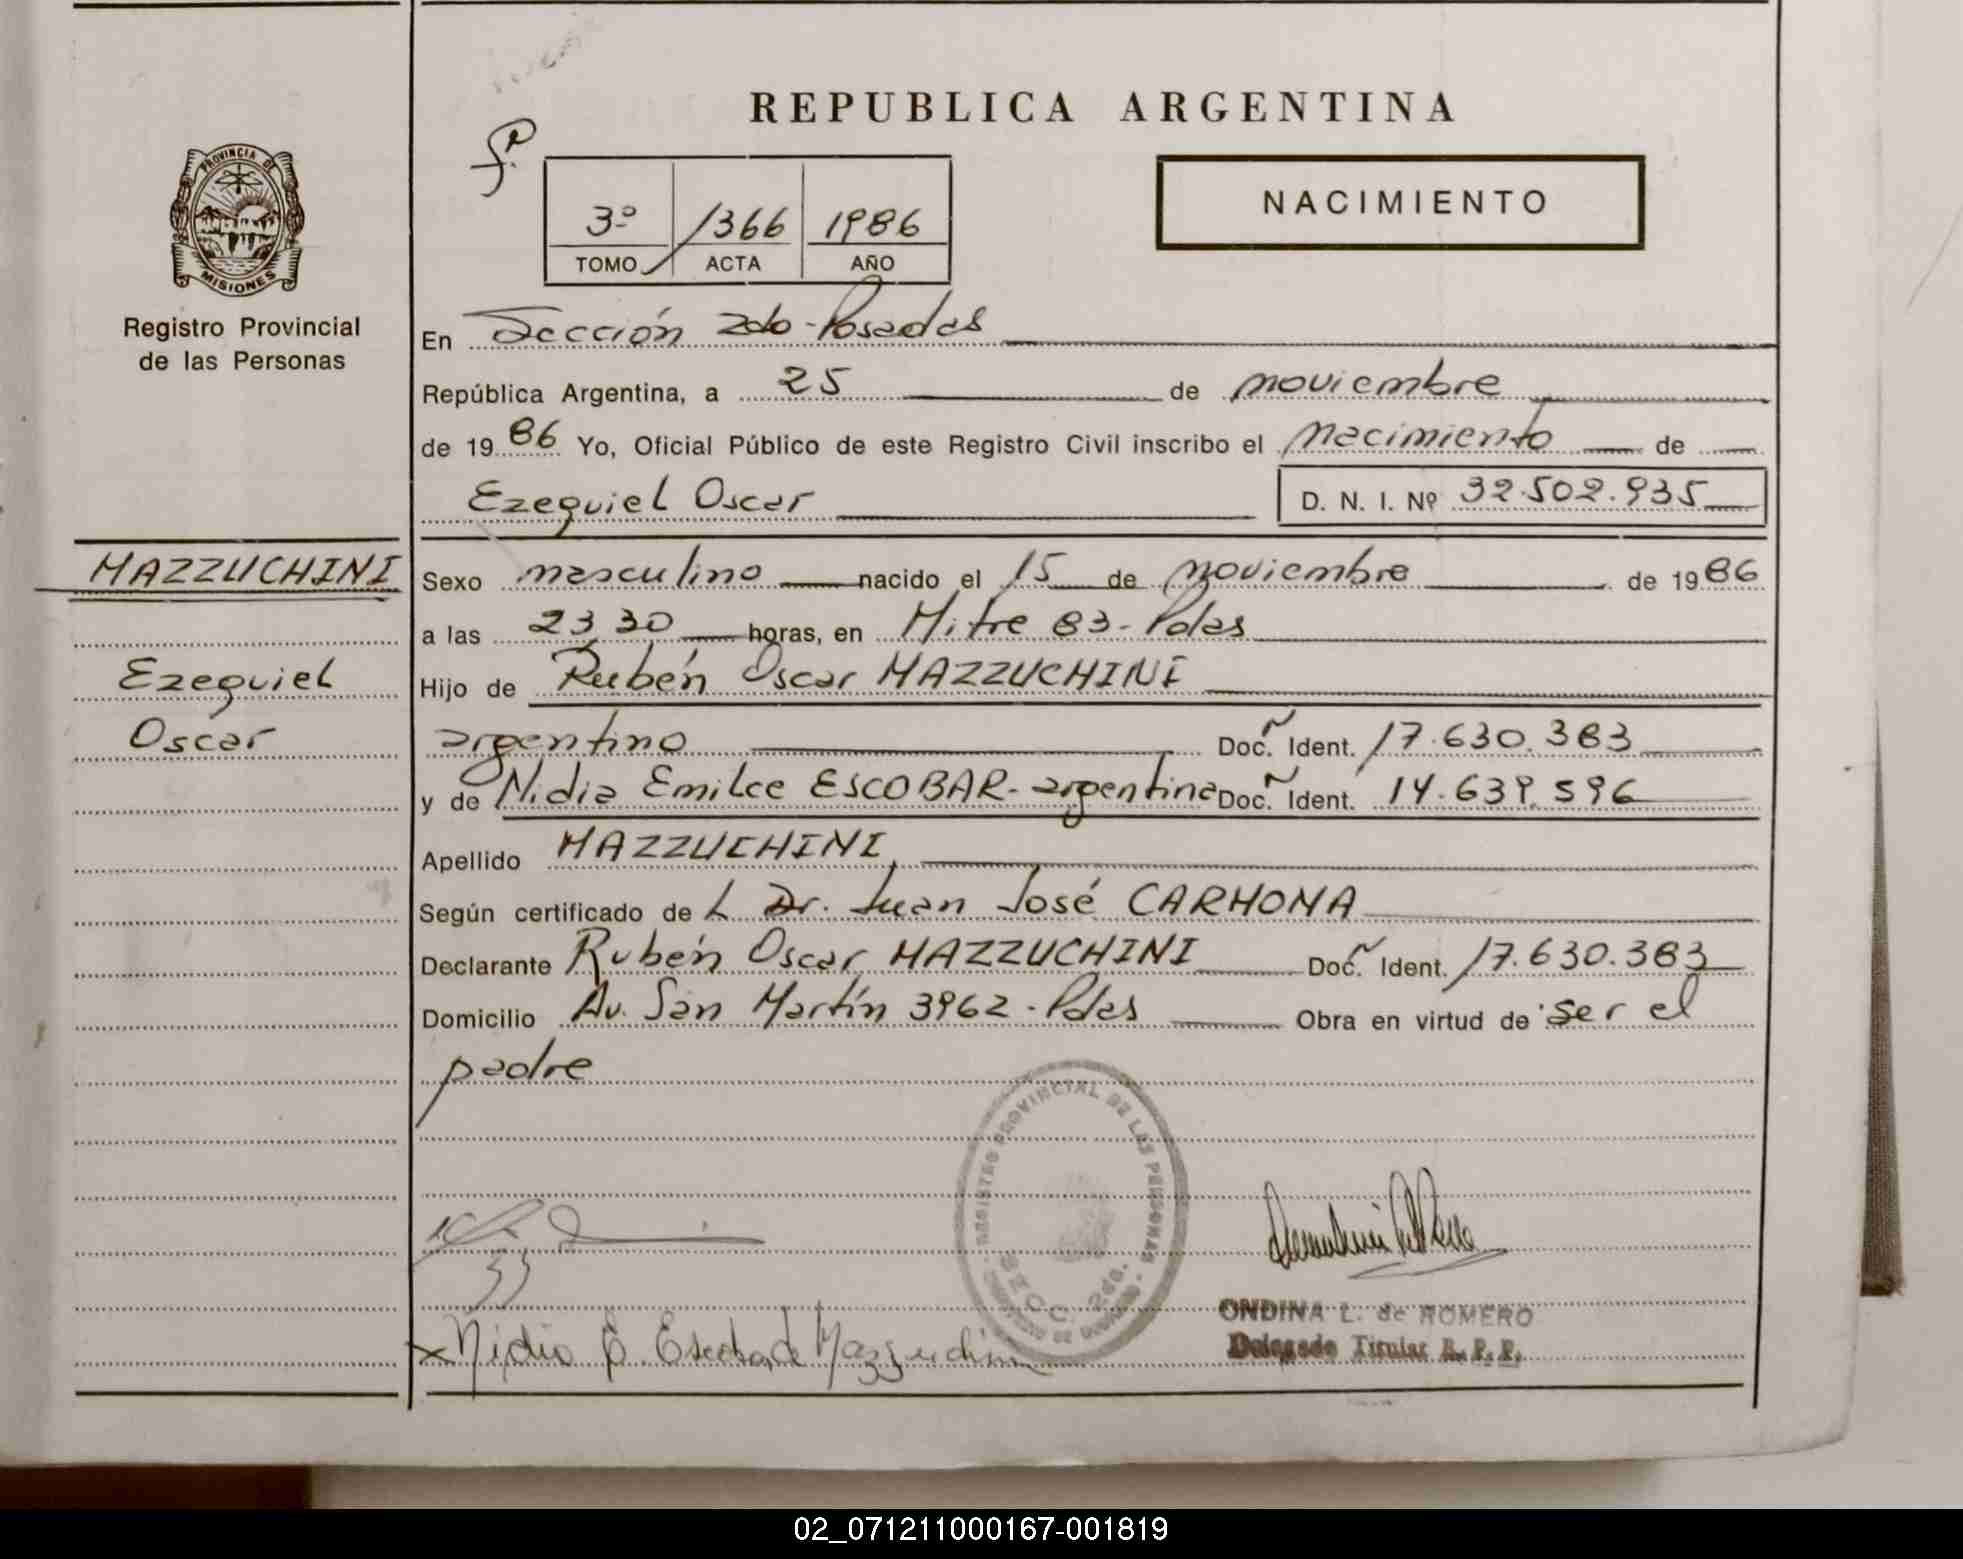 REPUBLICA ARGENTINA
NACIMIENTO
3º 1366 1986
TOMO ACTA AÑO
PROVINCIA DE
MISIONES
Registro Provincial
de las Personas
En Sección 2da - Posadas
República Argentina, a 25 de noviembre
de 1986 Yo, Oficial Público de este Registro Civil inscribo el nacimiento de
Ezequiel Oscar D. N. I. Nº 32.502.935
MAZZUCHINI
Ezequiel
Oscar
Sexo masculino nacido el 15 de noviembre de 1986
a las 23 30 horas, en Mitre 83 - Pdas
Hijo de Rubén Oscar MAZZUCHINI
argentino Doc. Ident. 17.630.383
y de Nidia Emilce ESCOBAR - argentina Doc. Ident. 14.639.596
Apellido MAZZUCHINI
Según certificado de L Dr. Juan José CARMONA
Declarante Rubén Oscar MAZZUCHINI Doc. Ident. 17.630.383
Domicilio Av. San Martín 3962 - Pdas Obra en virtud de ser el
padre
REGISTRO PROVINCIAL DE LAS PERSONAS
SECC. 2da.
ONDINA L. de ROMERO
Delegado Titular R. P. P.
Nidia E. Escobar de Mazzuchini
02_071211000167-001819